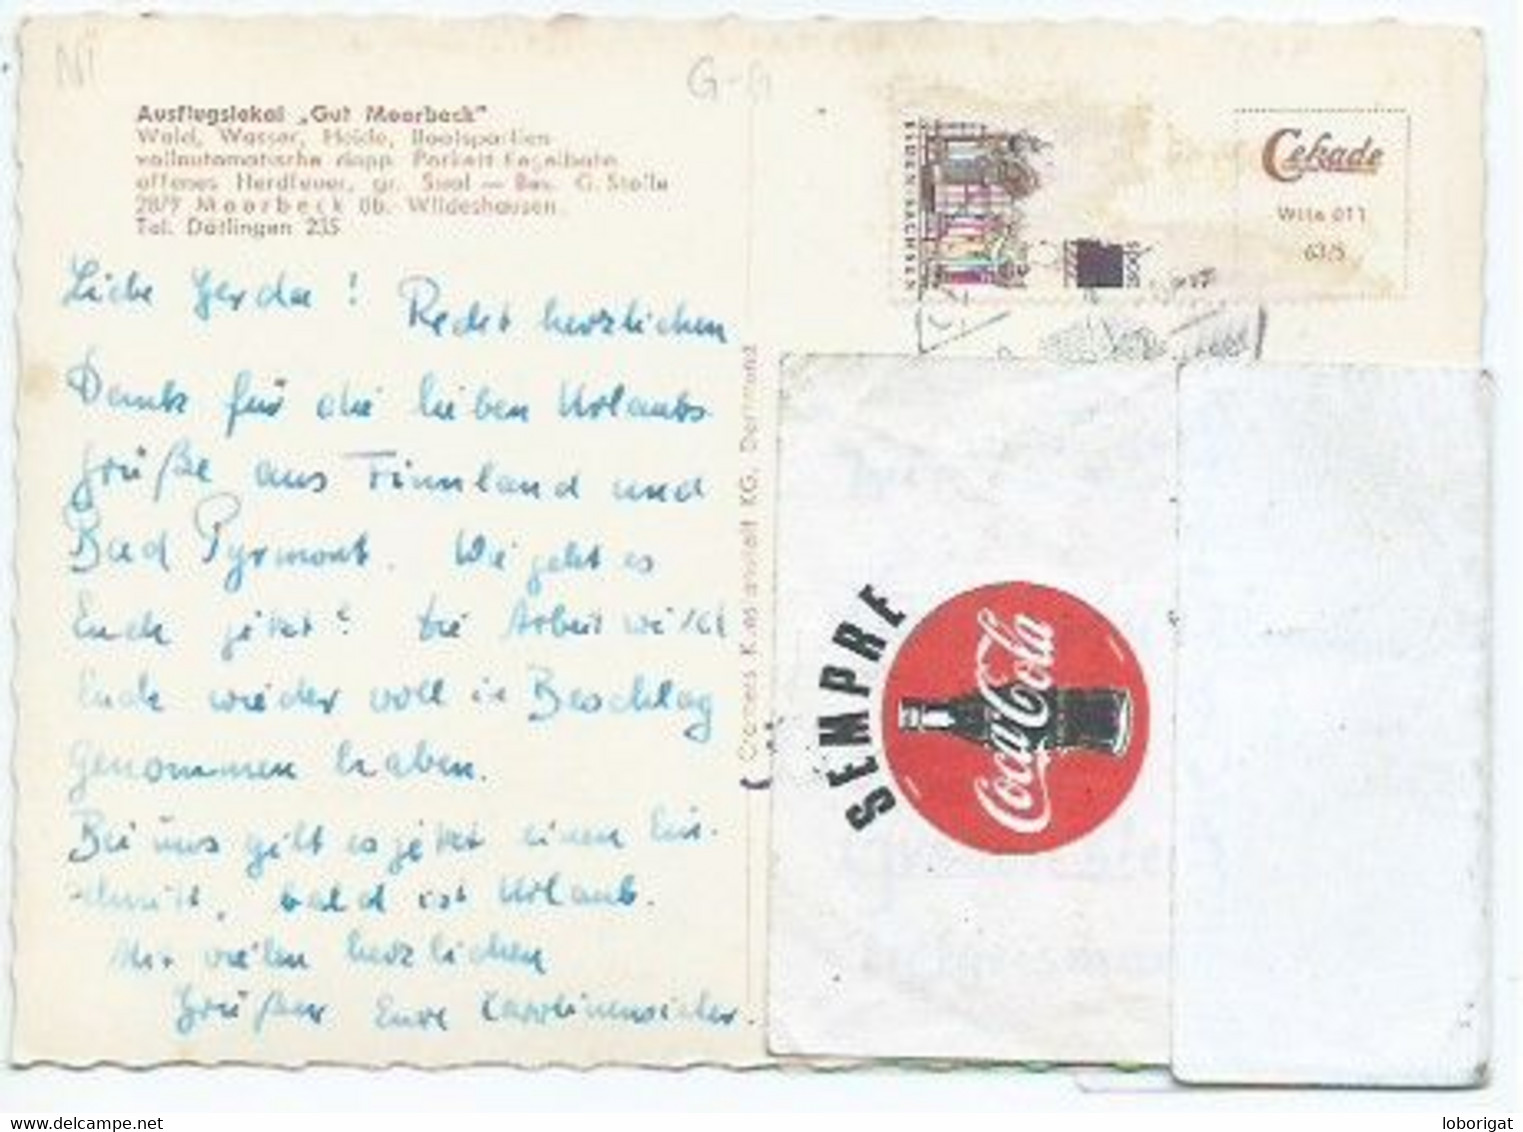 NI
G-A
Ausflugslokal „Gut Moorbeck"
Wald, Wasser, Heide, Bootspartien
vollautomatische dopp. Parkett-Kegelbahn
offenes Herdfeuer, gr. Saal — Bes. G. Stolle
2879 Moorbeck üb. Wildeshausen
Tel. Dötlingen 235
Liebe Gerda! Recht herzlichen
Dank für die lieben Urlaubs
grüße aus Finnland und
Bad Pyrmont. Wie geht es
Euch jetzt? Die Arbeit wird
Euch wieder voll in Beschlag
genommen haben.
Bei uns gilt es jetzt einen Ein-
schnitt, bald ist Urlaub.
Mit vielen herzlichen
Grüßen Eure
Cramers Kunstanstalt KG, Dortmund
NIEDERSACHSEN
Cekade
Wile 011
63/5
SEMPRE
Coca-Cola
loborigat